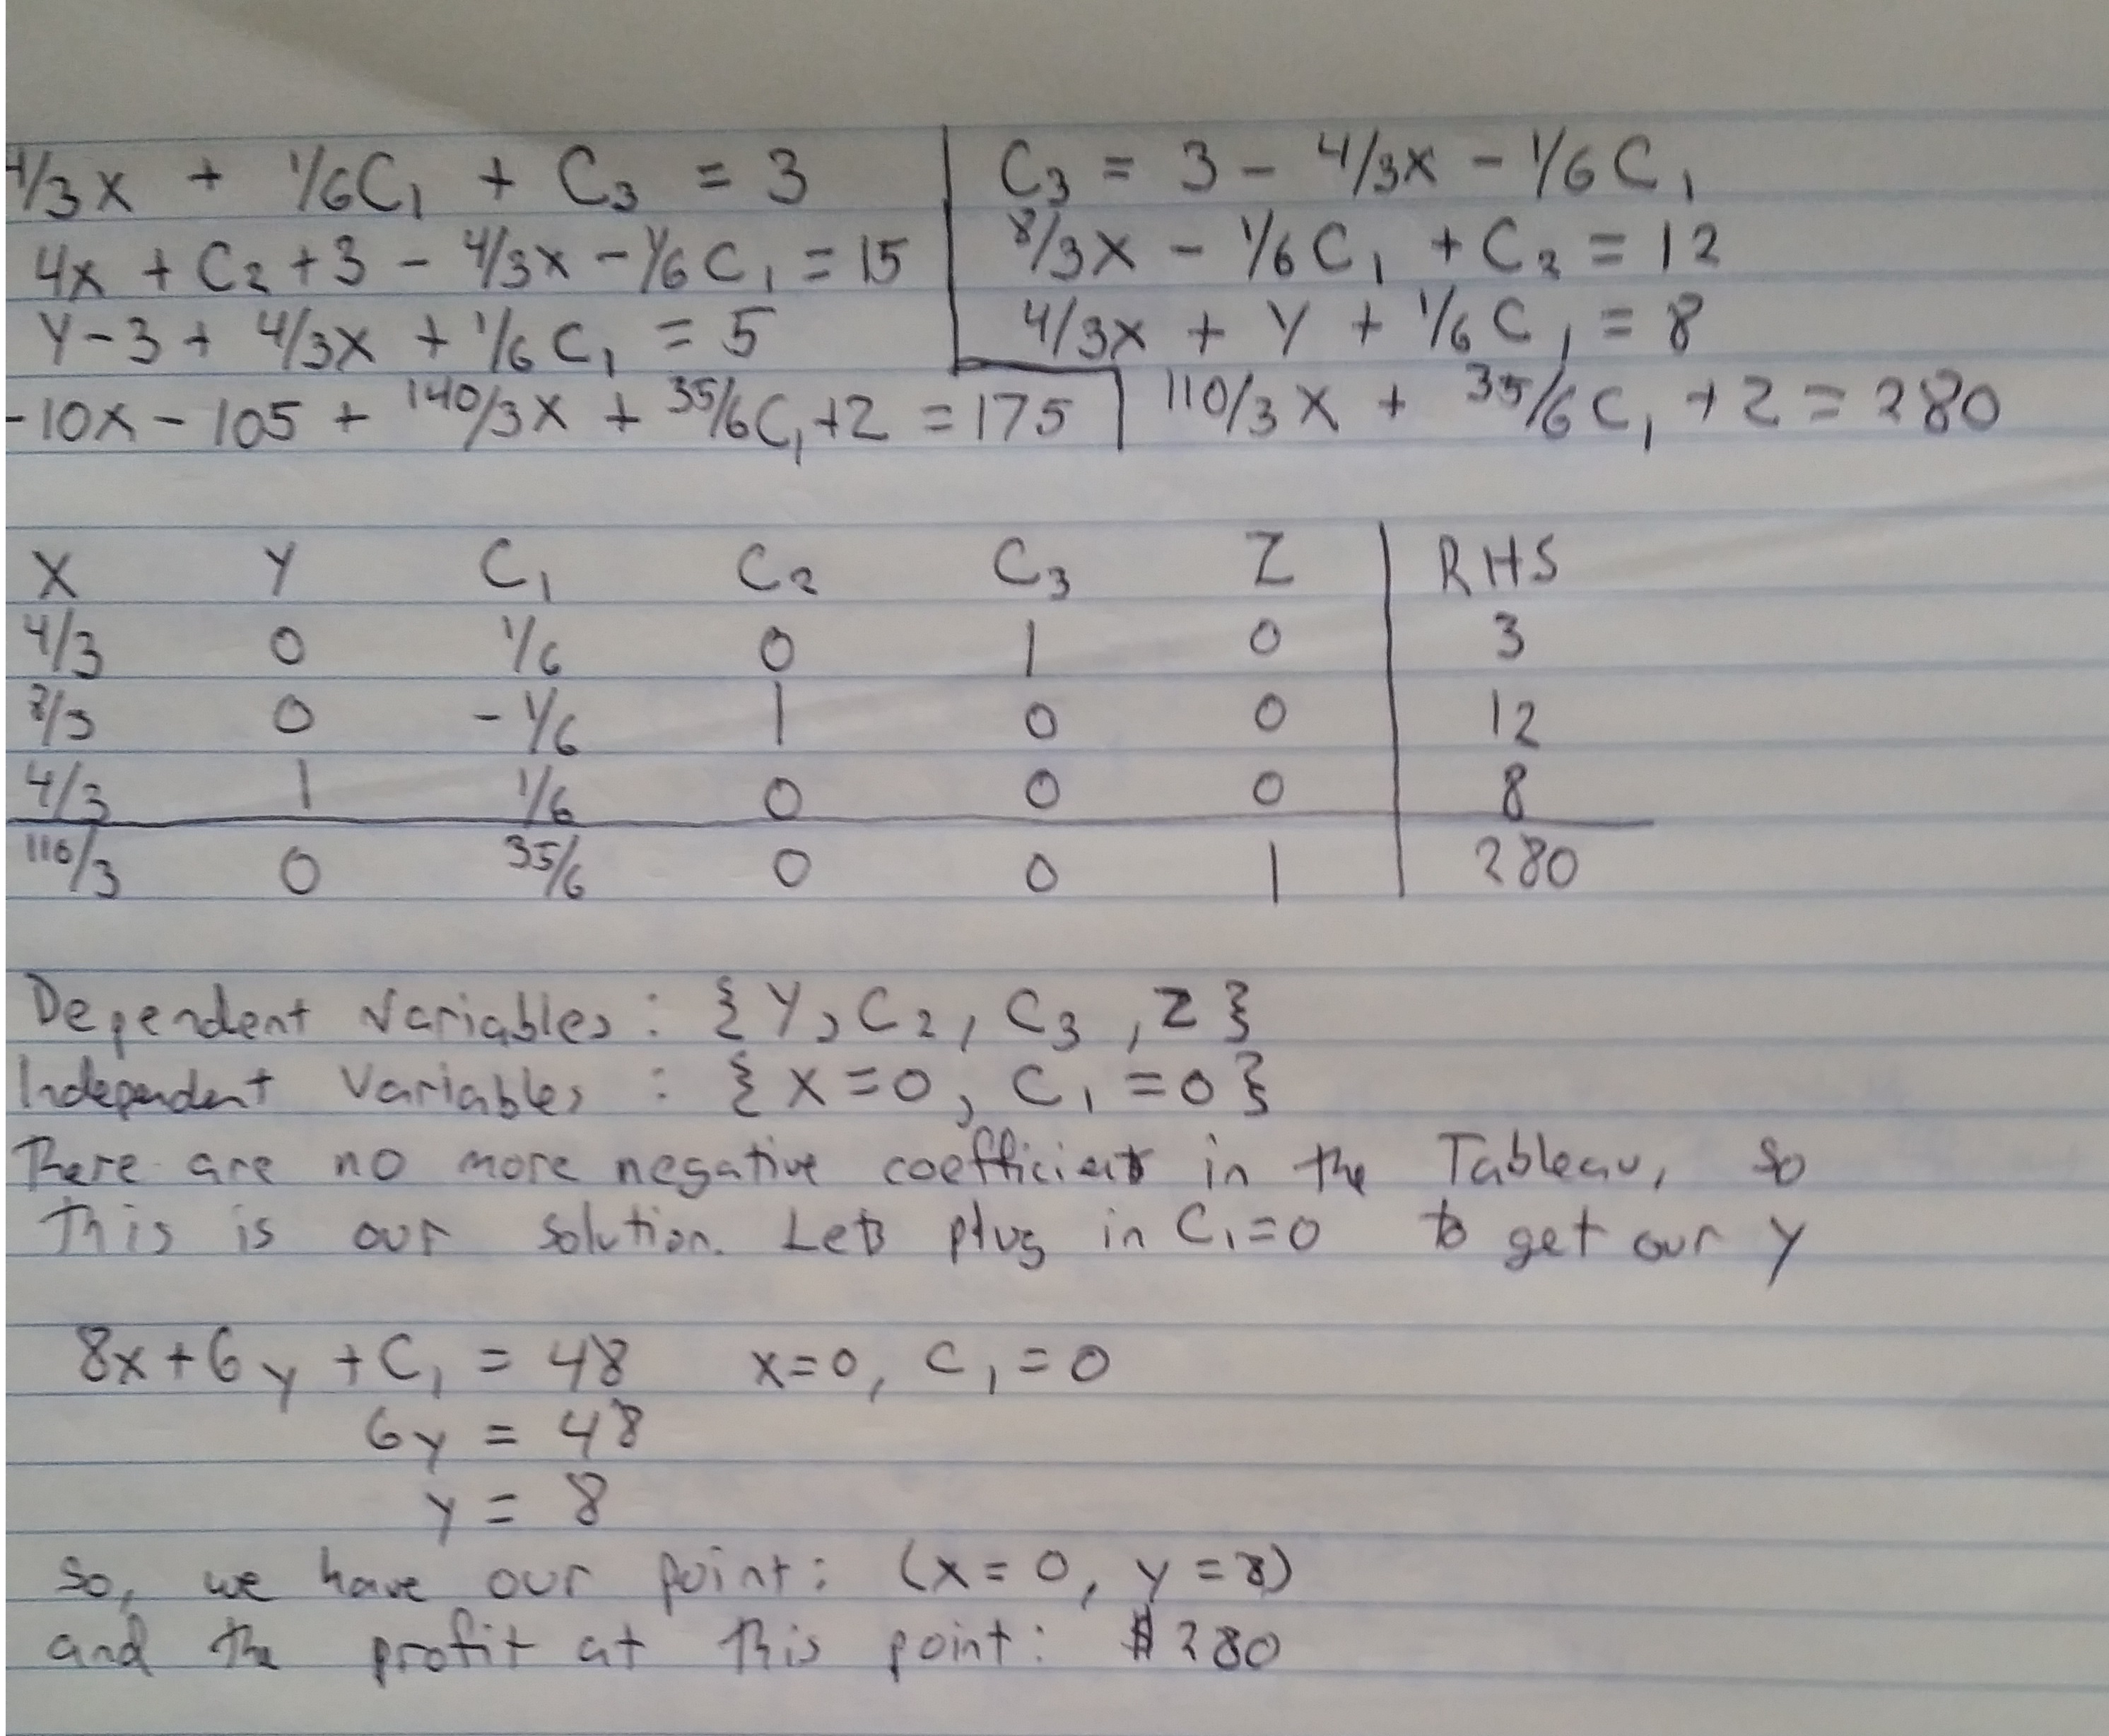 4/3x + 1/6C₁ + C₃ = 3 | C₃ = 3 - 4/3x - 1/6C₁
4x + C₂ + 3 - 4/3x - 1/6C₁ = 15 | 8/3x - 1/6C₁ + C₂ = 12
Y - 3 + 4/3x + 1/6C₁ = 5 | 4/3x + Y + 1/6C₁ = 8
-10x - 105 + 140/3x + 35/6C₁ + Z = 175 | 110/3x + 35/6C₁ + Z = 280
X Y C₁ C₂ C₃ Z | RHS
4/3 0 1/6 0 1 0 | 3
8/3 0 -1/6 1 0 0 | 12
4/3 1 1/6 0 0 0 | 8
110/3 0 35/6 0 0 1 | 280
Dependent Variables : {Y, C₂, C₃, Z}
Independent Variables : {X=0, C₁=0}
There are no more negative coefficients in the Tableau, so
this is our solution. Lets plug in C₁=0 to get our y
8x + 6y + C₁ = 48 x=0, C₁=0
6y = 48
y = 8
So, we have our point: (x=0, y=8)
and the profit at this point: $280